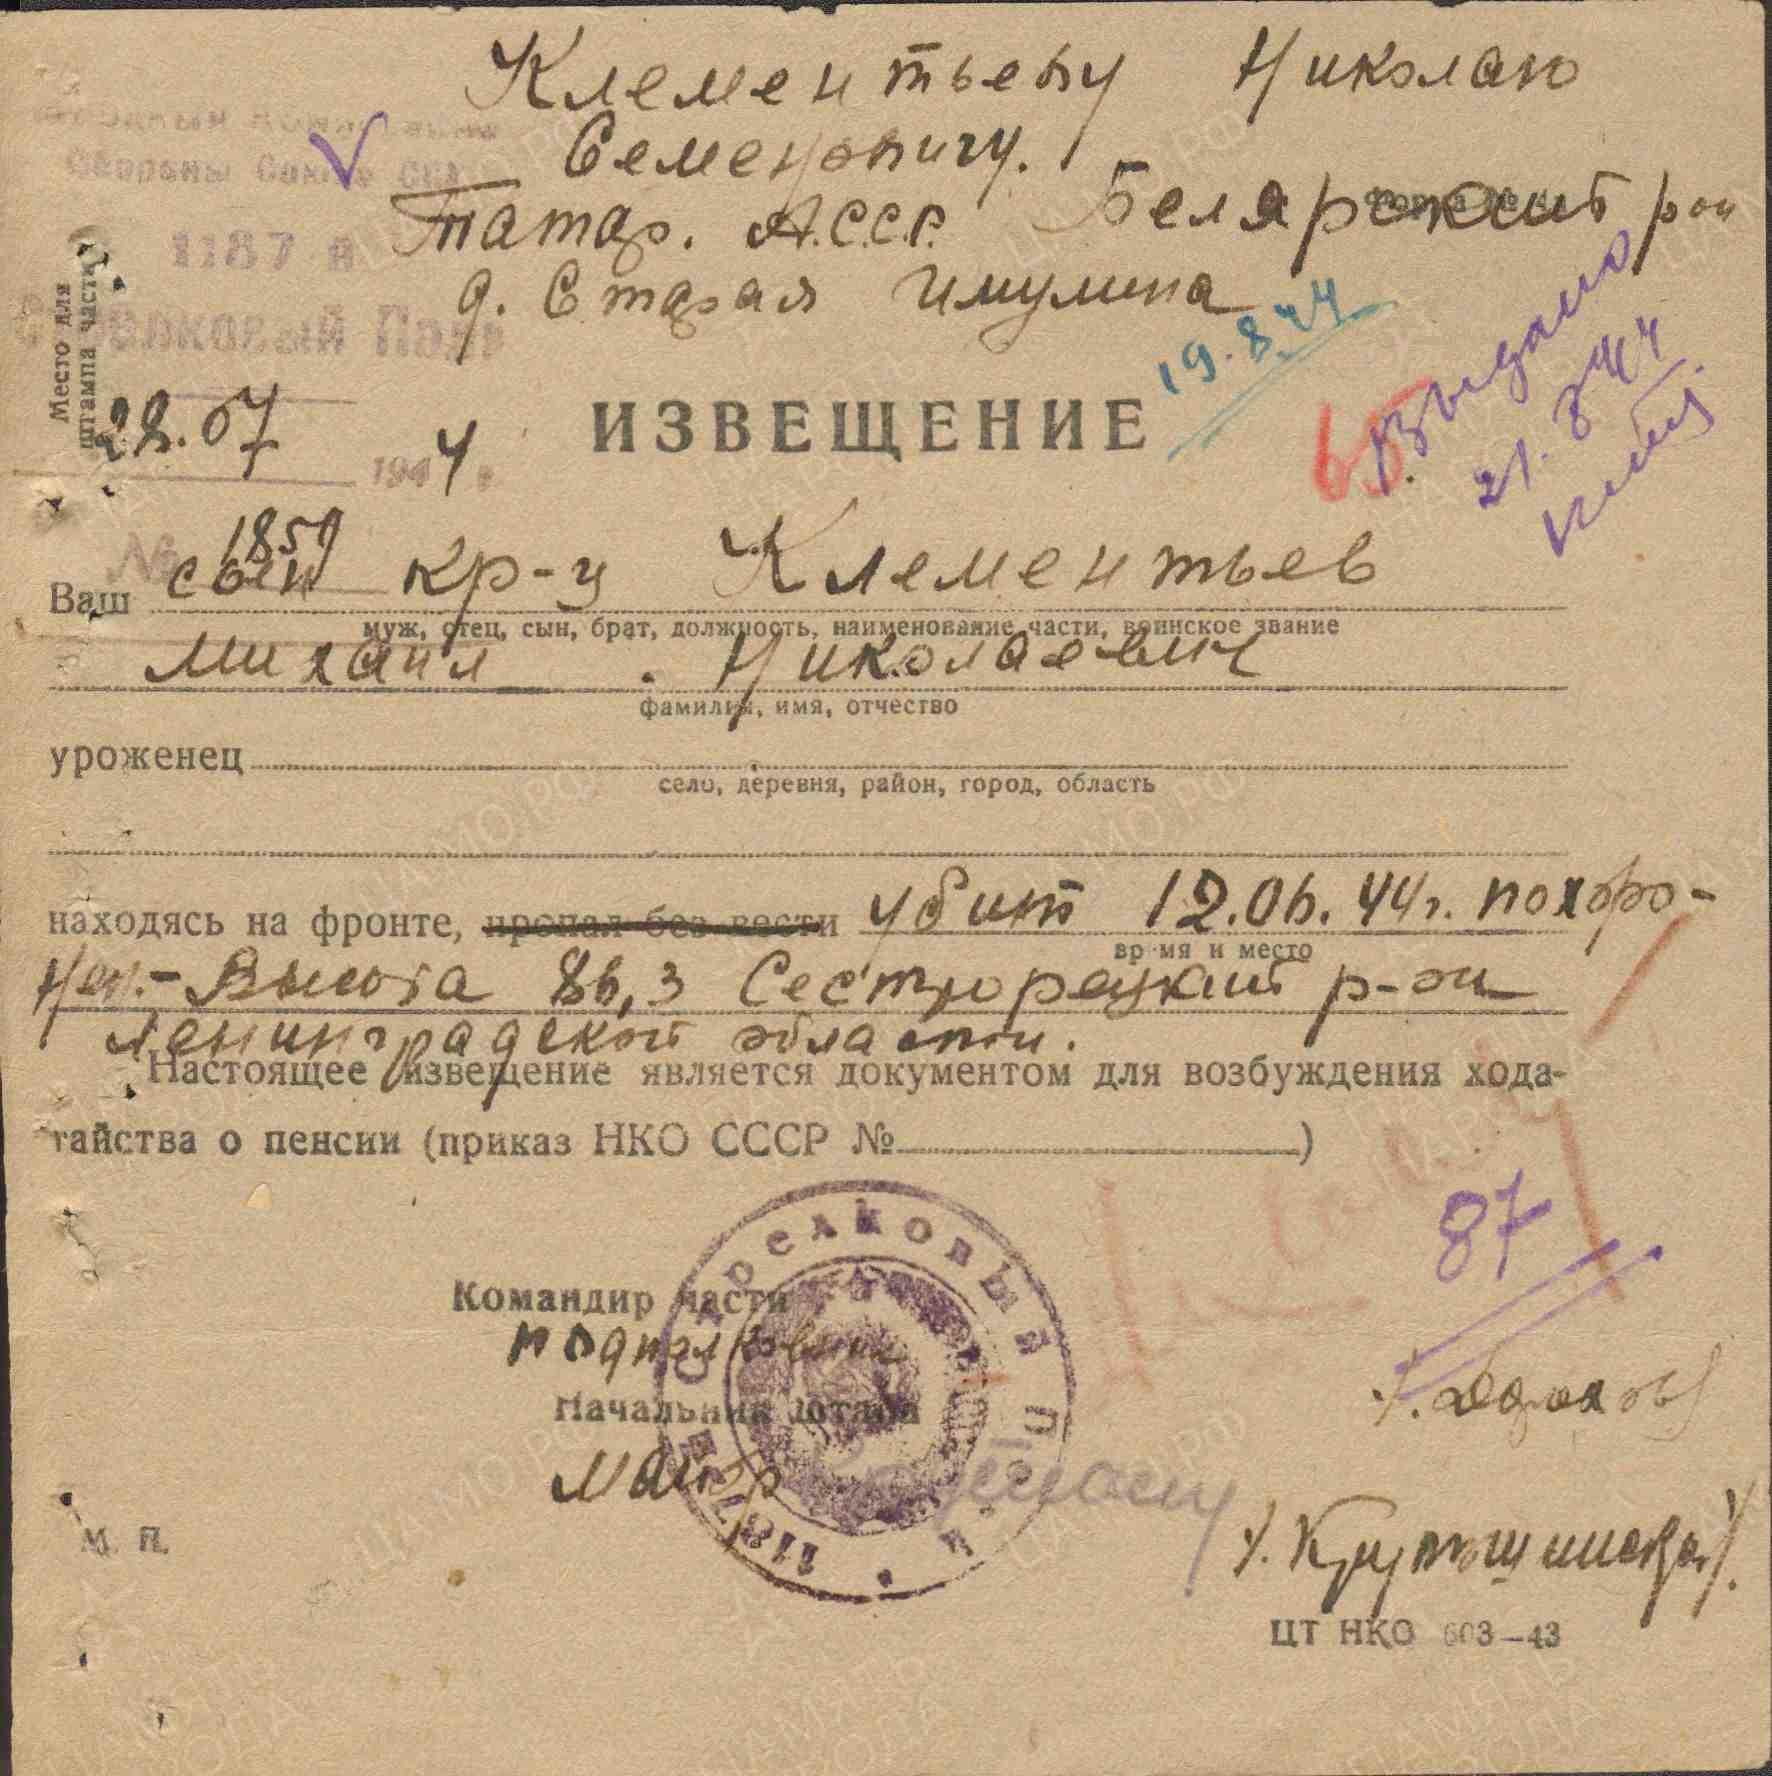 Клементьеву Николаю
Семеновичу.
Татар. А.С.С.Р. Белярский рои
д. Старая
Обороны Союза ССР
1187
Стрелковый Полк
Место для
штампа части
28.07 1944 г.
19.8.44
ИЗВЕЩЕНИЕ
65
Выдано
21.8.44
№ 1859
Ваш сын кр-ц Клементьев
муж, отец, сын, брат, должность, наименование части, воинское звание
Михаил Николаевич
фамилия, имя, отчество
уроженец
село, деревня, район, город, область
находясь на фронте, пропал без вести убит 12.06.44г. похоро-
время и место
нен.- Высота 86,3 Сестрорецкий р-он
Ленинградской области.
Настоящее извещение является документом для возбуждения хода-
тайства о пенсии (приказ НКО СССР №)
87
Командир части
подполковник
Начальник штаба
майор
Стрелковый п
1187
М. П.
ЦТ НКО 603—43